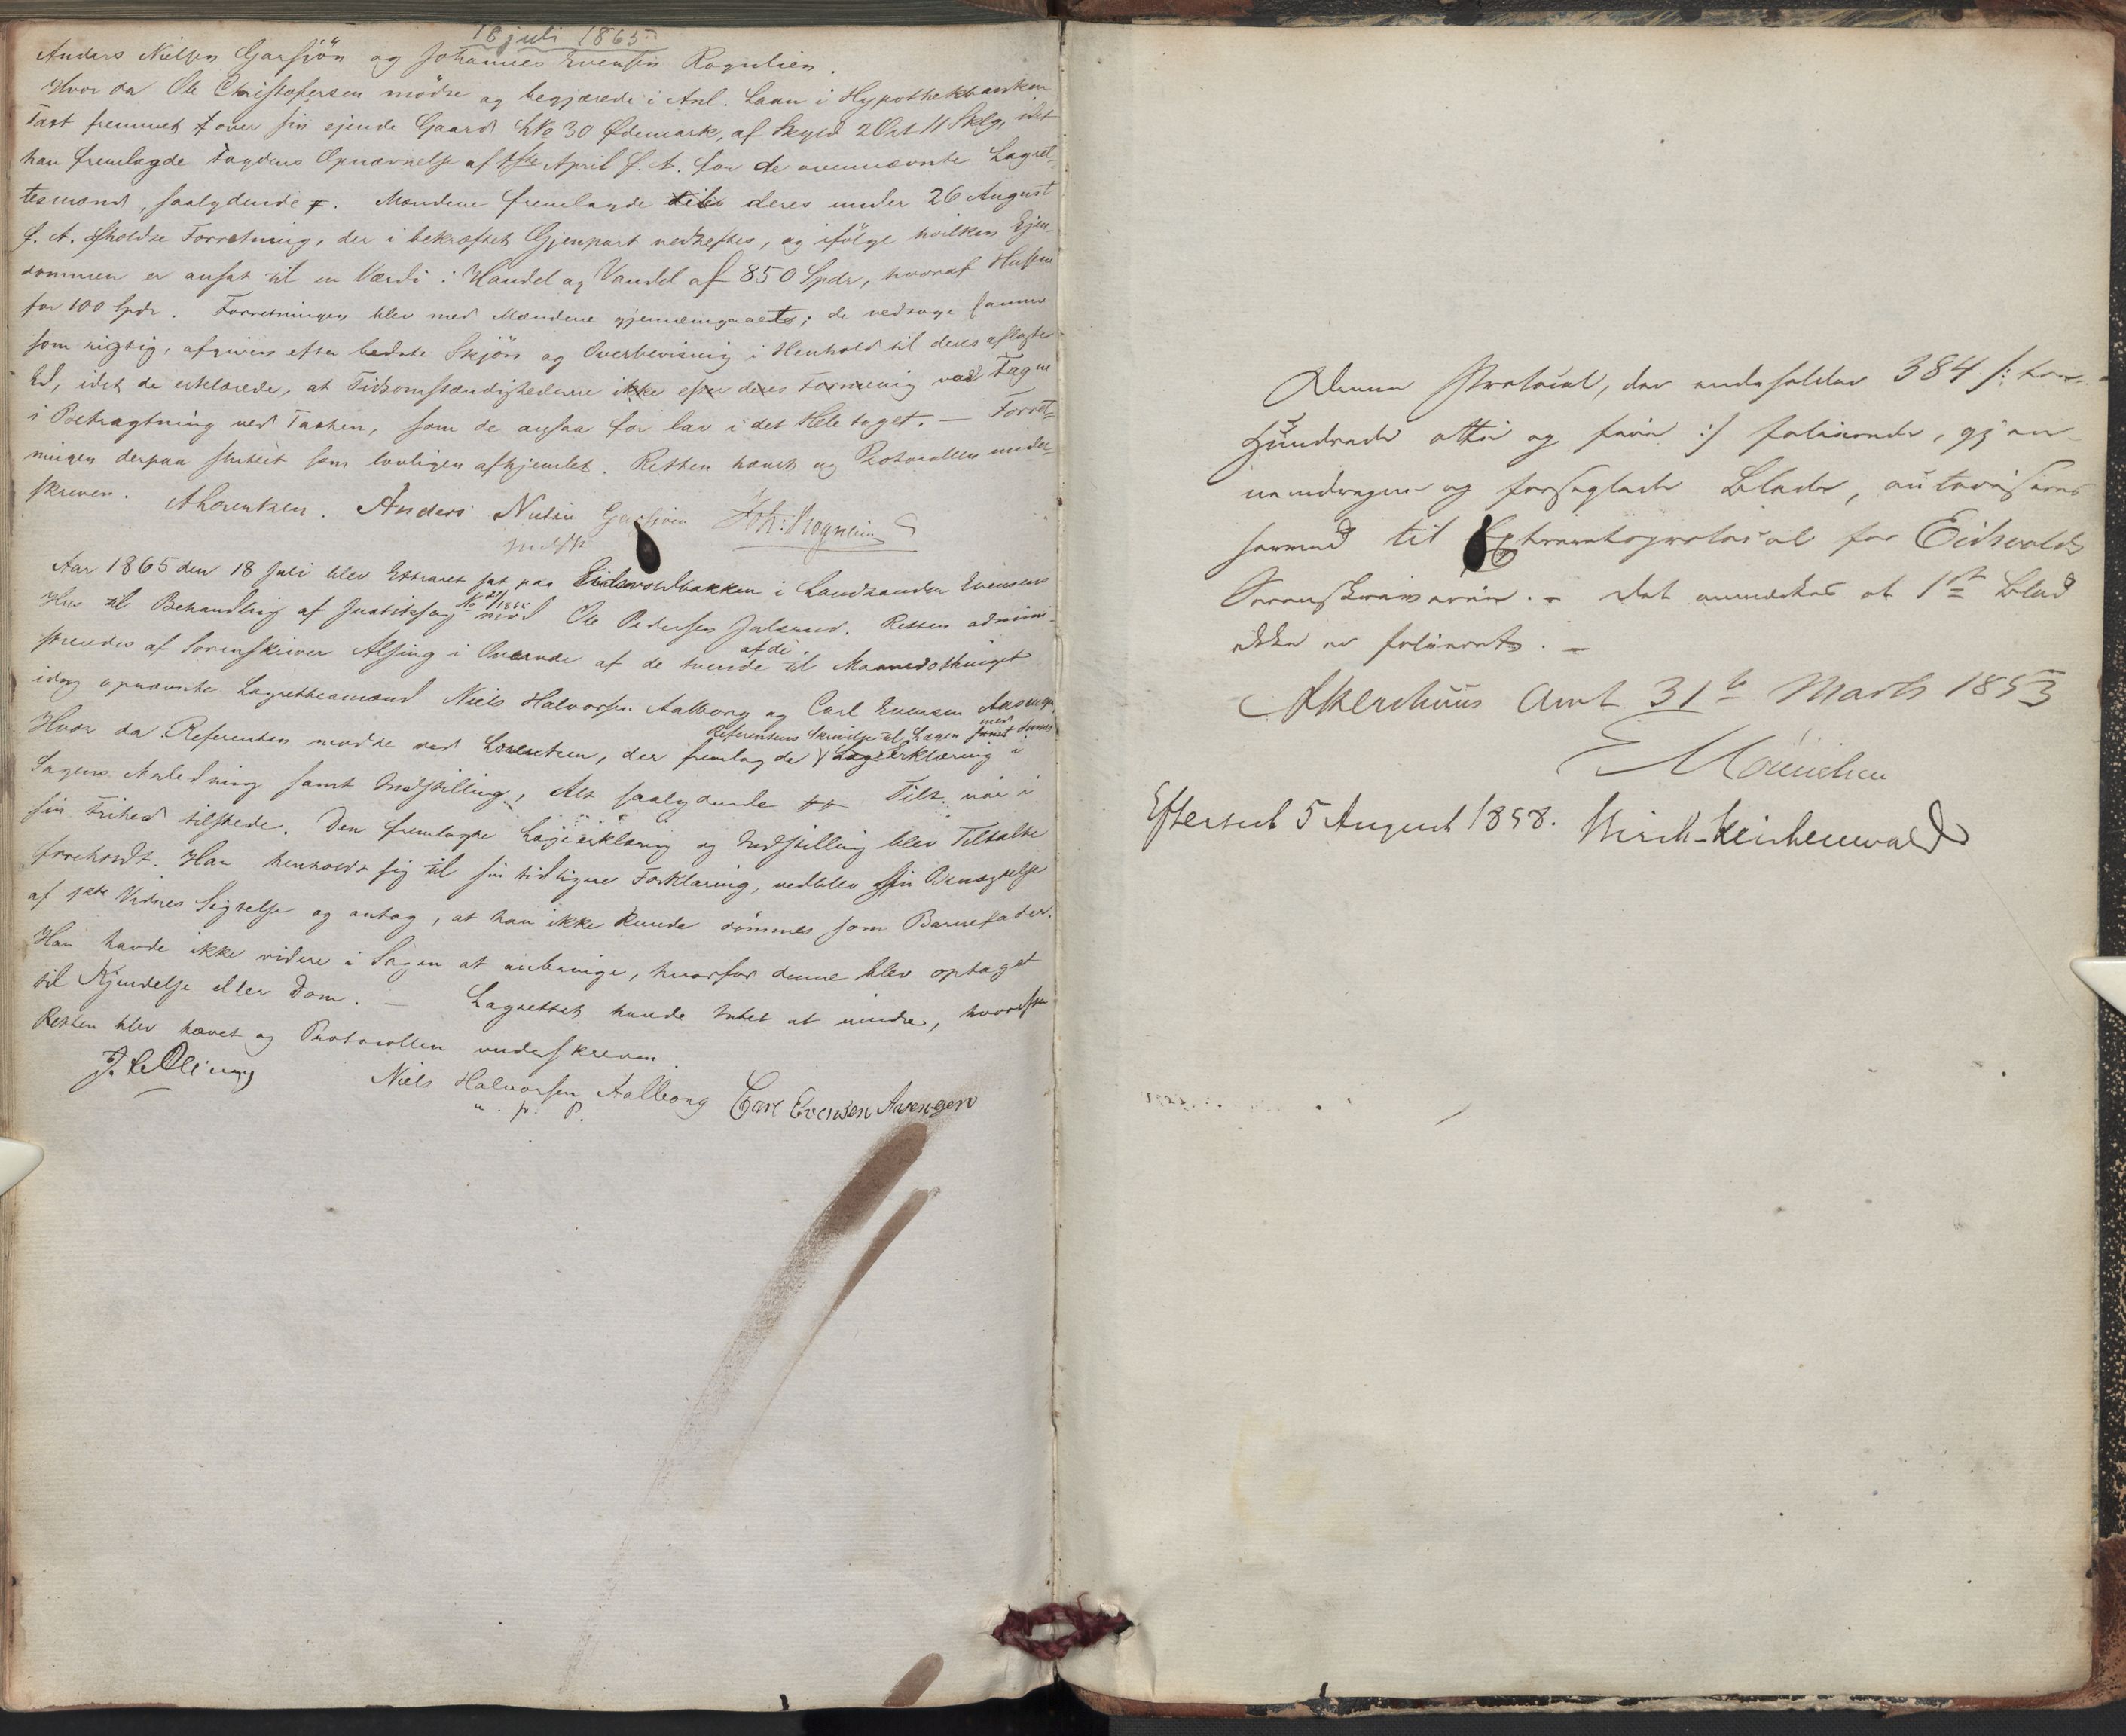 18 juli 1865
Anders Nielsen Garsjön og Johannes Evensen Rognlien.
Hvor da Ole Christofersen mödte og begjærede i Anl. Laan i Hypothekbanken
Taxt fremmet over sin ejende Gaard LNo 30 Ødemark, af Skyld 2 Ort 11 Sklg, idet
han fremlagde Fogdens Opnævnelse af April f. A. for de ovennævnte Lagret-
tesmænd, saalydende #. Mændene fremlagde deres under 26 August
f. A. afholdte Forretning, der i bekræftet Gjenpart vedheftes, og ifölge hvilken Ejen-
dommen er ansat til en Værdi i Handel og Vandel af 850 Spdr, hvoraf Husene
for 100 Spdr. Forretningen blev med Mændene gjennemgaaet; de vedtoge samme
som rigtig, afgiven efter bedste Skjön og Overbeviisning i Henhold til deres aflagte
Ed, idet de erklærede, at Tidsomstændighederne ikke efter deres Formening var tagne
i Betragtning ved Taxten, som de ansaa for lav i det Hele taget. — Forret-
ningen derpaa sluttet som lovligen afhjemlet. Retten hævet og Protocollen under-
skreven. ALorentzen. Anders Nielsen Garsjöen Joh: Rognlien
Aar 1865 den 18 Juli blev Extraret sat paa Eidsvoldbakken i Landhandler Evensens
Hus til Behandling af Justitssag No 21/1865 mod Ole Pedersen Julsrud. Retten admini-
streredes af Sorenskriver Alsing i Overvær af de tvende af de til Maanedsthinget
idag opnævnte Lagrettesmænd Niels Halvorsen Aalborg og Carl Evensen Aasengen
Hvor da Referenten mødte ved Lorentzen, der fremlagde Referentens Skrivelse til Lagen samt med dennes Erklæring i
Sagens Anledning samt Indstilling, Alt saalydende ## Tilt. var i
sin Frihed tilstede. Den fremlagte Lægeerklæring og Indstilling blev Tiltalte
foreholdt. Han henholdt sig til sin tidligere Forklaring, vedblev sin Benægtelse
af 1ste Vidnes Sigtelse og antog, at han ikke kunde dømmes som Barnefader.
Han havde ikke videre i Sagen at anbringe, hvorfor denne blev optaget
til Kjendelse eller Dom. — Lagrettet havde Intet at erindre, hvorefter
Retten blev hævet og Protocollen underskreven.
Niels Halvorsen Aalborg Carl Evensen Aasengen
m. p. P.
Denne Protocol, der indeholder 384 /: tre
Hundrede otti og fire :/ folierede, gjen-
nemdragne og forseglede Blade, autoriseres
herved til Extraretsprotocol for Eidsvolds
Sorenskriverie. – Det anmærkes at 1ste Blad
ikke er folieret. –
Akershuus Amt 31te Marts 1853
Efterseet 5 August 1858. Birch-Reichenwald